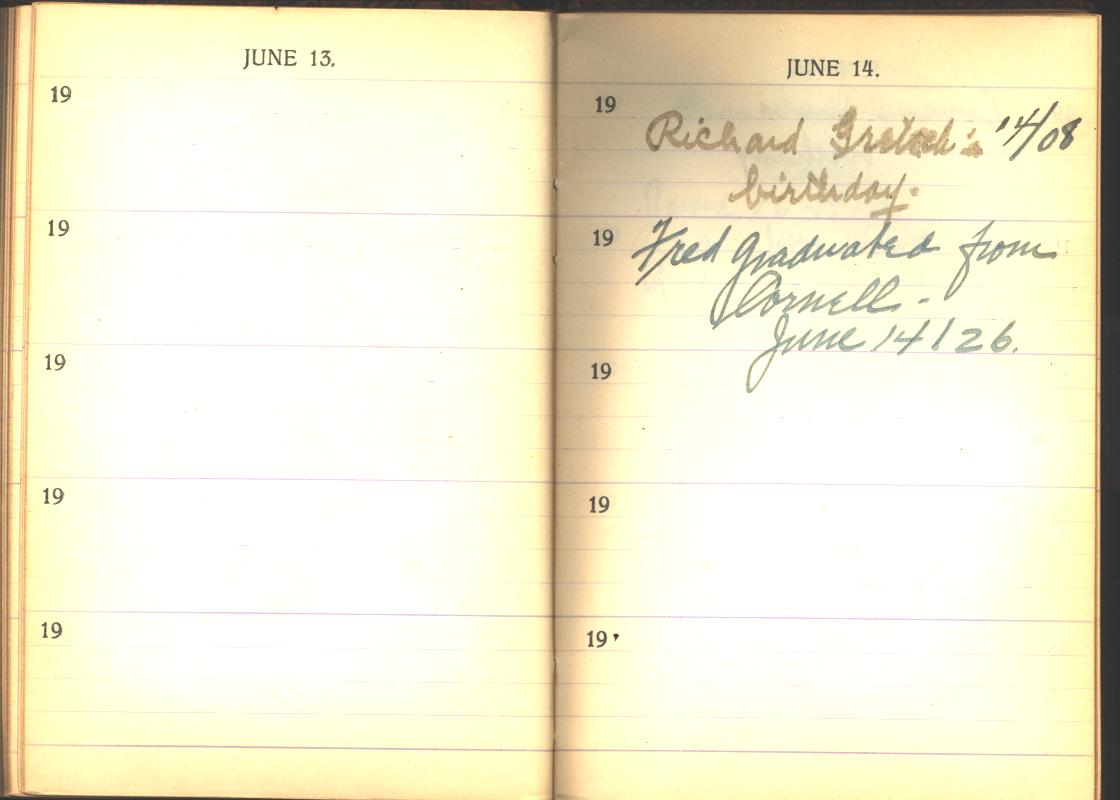 JUNE 13.
19
19
19
19
19
JUNE 14.
19
Richard Gretsch's '14/08
birthday.
19
Fred graduated from
Cornell -
June 14/26.
19
19
19